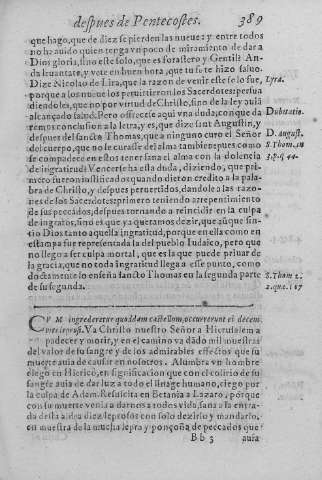 despues de Pentecostes. 389
que hago, que de diez se pierden las nueue: y entre todos
no ha auido quien tenga vn poco de miramiento de dar a
Dios gloria, sino este solo, que es forastero y Gentil: An-
da leuantate, y vete en buen hora, que tu fe te hizo saluo.
Dize Nicolao de Lira, que la razon de venir este solo fue,
porque a los nueue los peruirtieron los Sacerdotes: persua
diendoles, que no por virtud de Christo, sino de la ley auiā
alcançado salud. Pero ofrecese aqui vna duda, con que da
remos conclusion a la letra, y es, que dize sant Augustin, y
despues del sancto Thomas, que a ninguno curo el Señor
del cuerpo, que no le curasse del alma tambien: pues como
se compadece en estos tener sana el alma con la dolencia
de ingratitud? Vencerse ha esta duda, diziendo, que pri-
mero fueron justificados quando dieron credito a la pala
bra de Christo, y despues peruertidos, dandole a las razo-
nes de los Sacerdotes: primero teniendo arrepentimiento
de sus peccados, despues tornando a reincidir en la culpa
de ingratos, sino es que ya queramos dezir, que aūque sin-
tio Dios tanto aquella ingratitud, porque en ella como en
estampa fue representada la del pueblo Iudaico, pero que
no llego a ser culpa mortal, que es la que puede priuar de
la gracia, que no toda ingratitud llega a esse punto, como
doctamente lo enseña sancto Thomas en la segunda parte
de su segunda.
Lyra.
Dubitatio.
D. August.
S. Thom. in
3. p. q. 44.
S. Thom. 2.
2. quæ. 107
CVM ingrederetur quoddam castellum, occurrerunt ei decem
viri leprosi. Ya Christo nuestro Señor a Hierusalem a
padecer y morir, y en el camino va dādo mil muestras
del valor de su sangre y de los admirables effectos que su
muerte auia de causar en nosotros. Alumbra vn hombre
ciego en Hierico, en significacion que con el colirio de su
sangre auia de dar luz a todo el linage humano, ciego por
la culpa de Adam. Resuscita en Betania a Lazaro, porque
con su muerte venia a darnos a todos vida, sana a la entra-
da desta aldea diez leprosos con solo dezirlo y mandarlo,
en muestra de la mucha lepra y ponçoña de peccados que
B b 3 auia